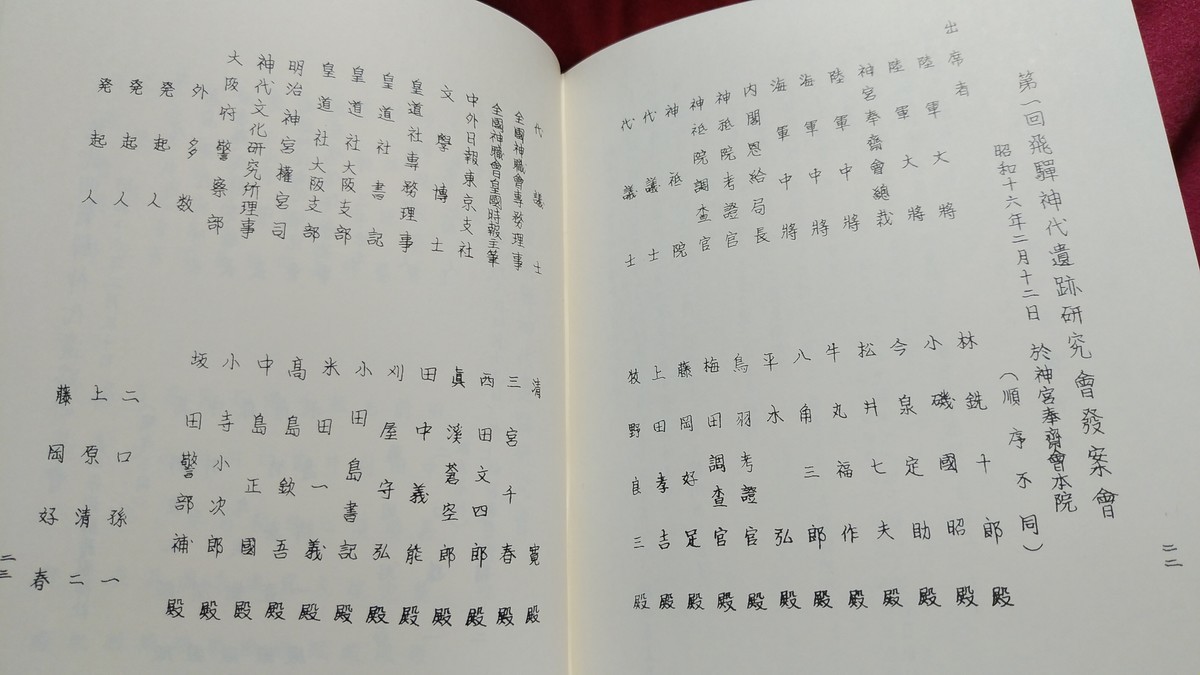 第一回飛驒神代遺跡研究會發案會
昭和十六年二月十二日 於神宮奉齋會本院
出席者 (順序不同)
陸軍大將 林銑十郎殿
陸軍大將 小磯國昭殿
神宮奉齋會總裁 今泉定助殿
陸軍中將 松井七夫殿
海軍中將 牛丸福作殿
海軍中將 八角三郎殿
内閣恩給局長 平木弘殿
神祇院考證官 鳥羽考證官殿
神祇院調查官 梅田調查官殿
神祇院 藤岡好足殿
代議士 上田孝吉殿
代議士 牧野良三殿
二二
代議士 清寛殿
全國神職會專務理事 三宮千春殿
全國神職會皇國時報主筆 西田文四郎殿
中外日報東京支社 眞溪蒼空郎殿
文學博士 田中義能殿
皇道社專務理事 刈屋守弘殿
皇道社書記 小田島書記殿
皇道社大阪支部 米田一義殿
皇道社大阪支部 髙島欽吾殿
明治神宮權宮司 中島正國殿
神代文化研究所理事 小寺小次郎殿
大阪府警察部 坂田警部補殿
外多数
発起人 二口孫一
発起人 上原清二
発起人 藤岡好春
二三